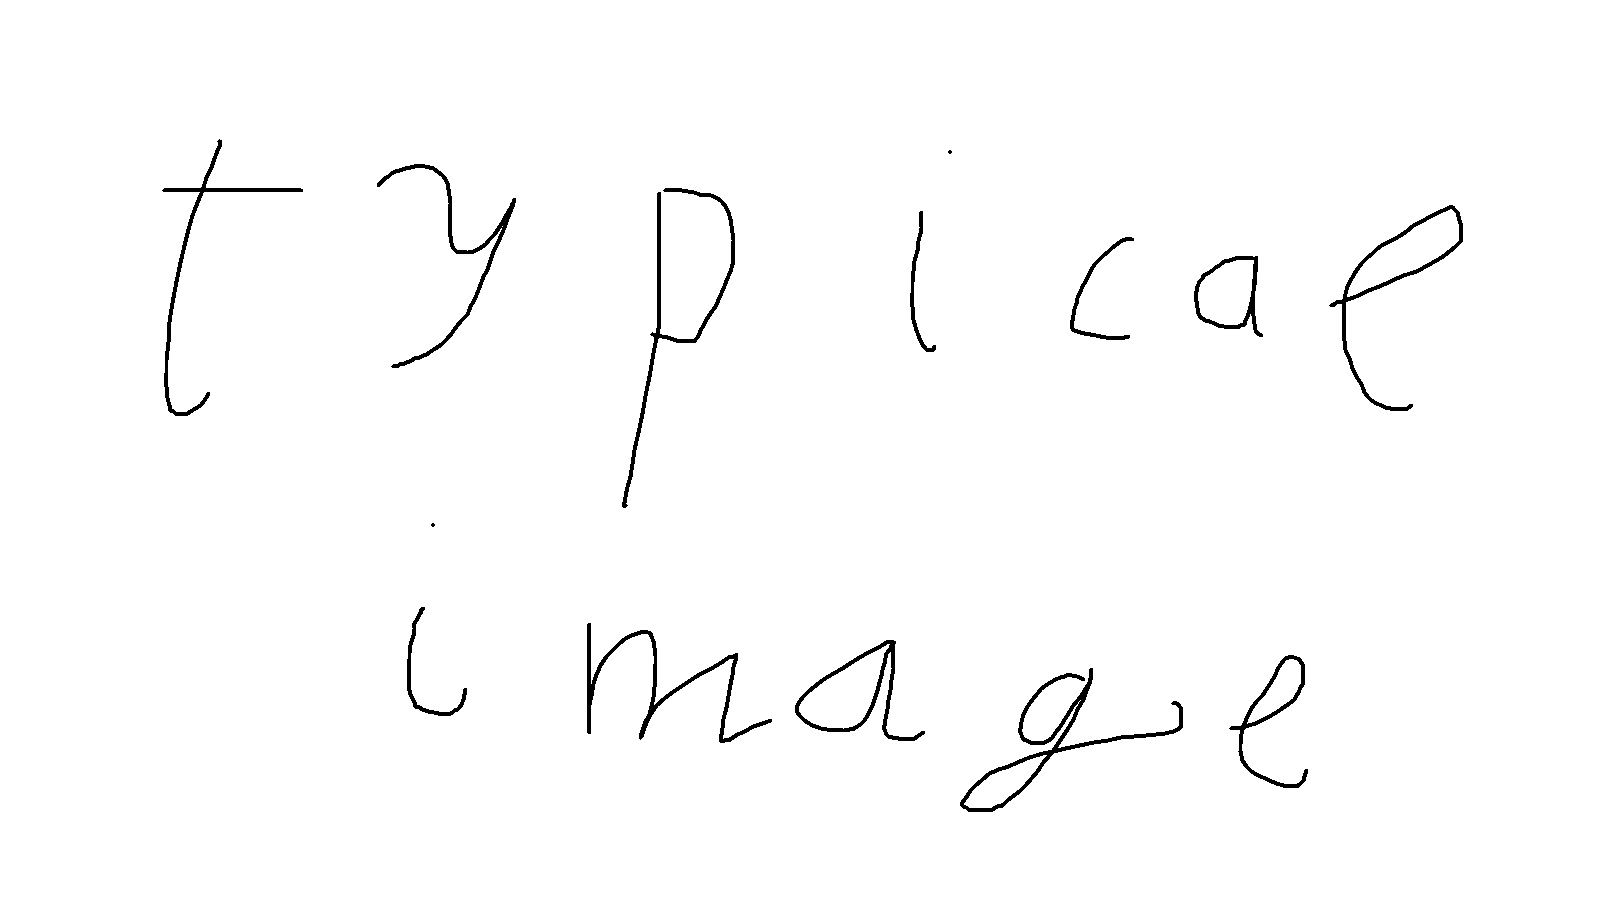 typical
image